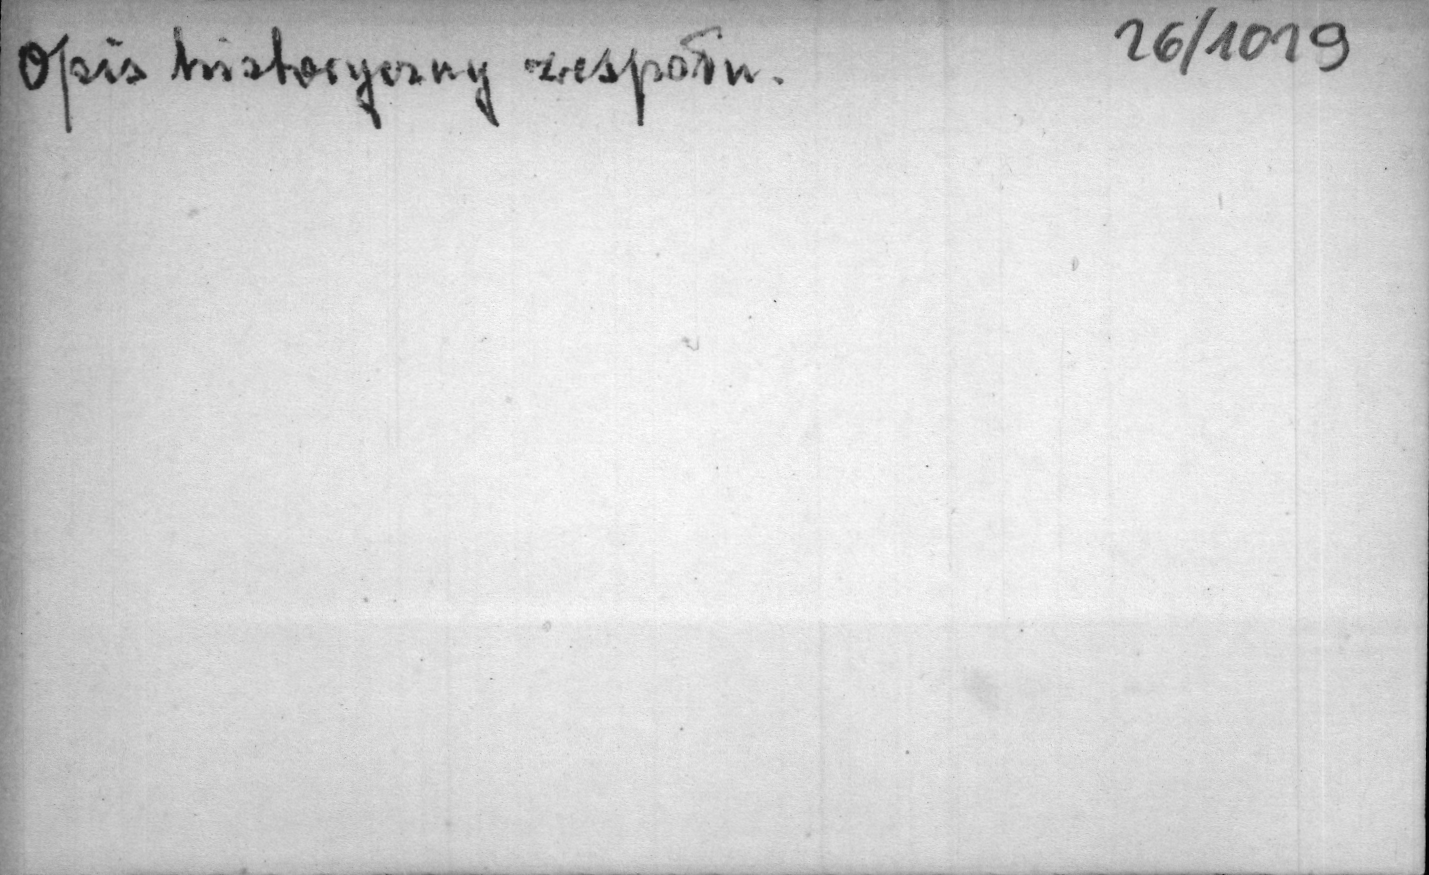 Opis historyczny zespołu.
26/1019